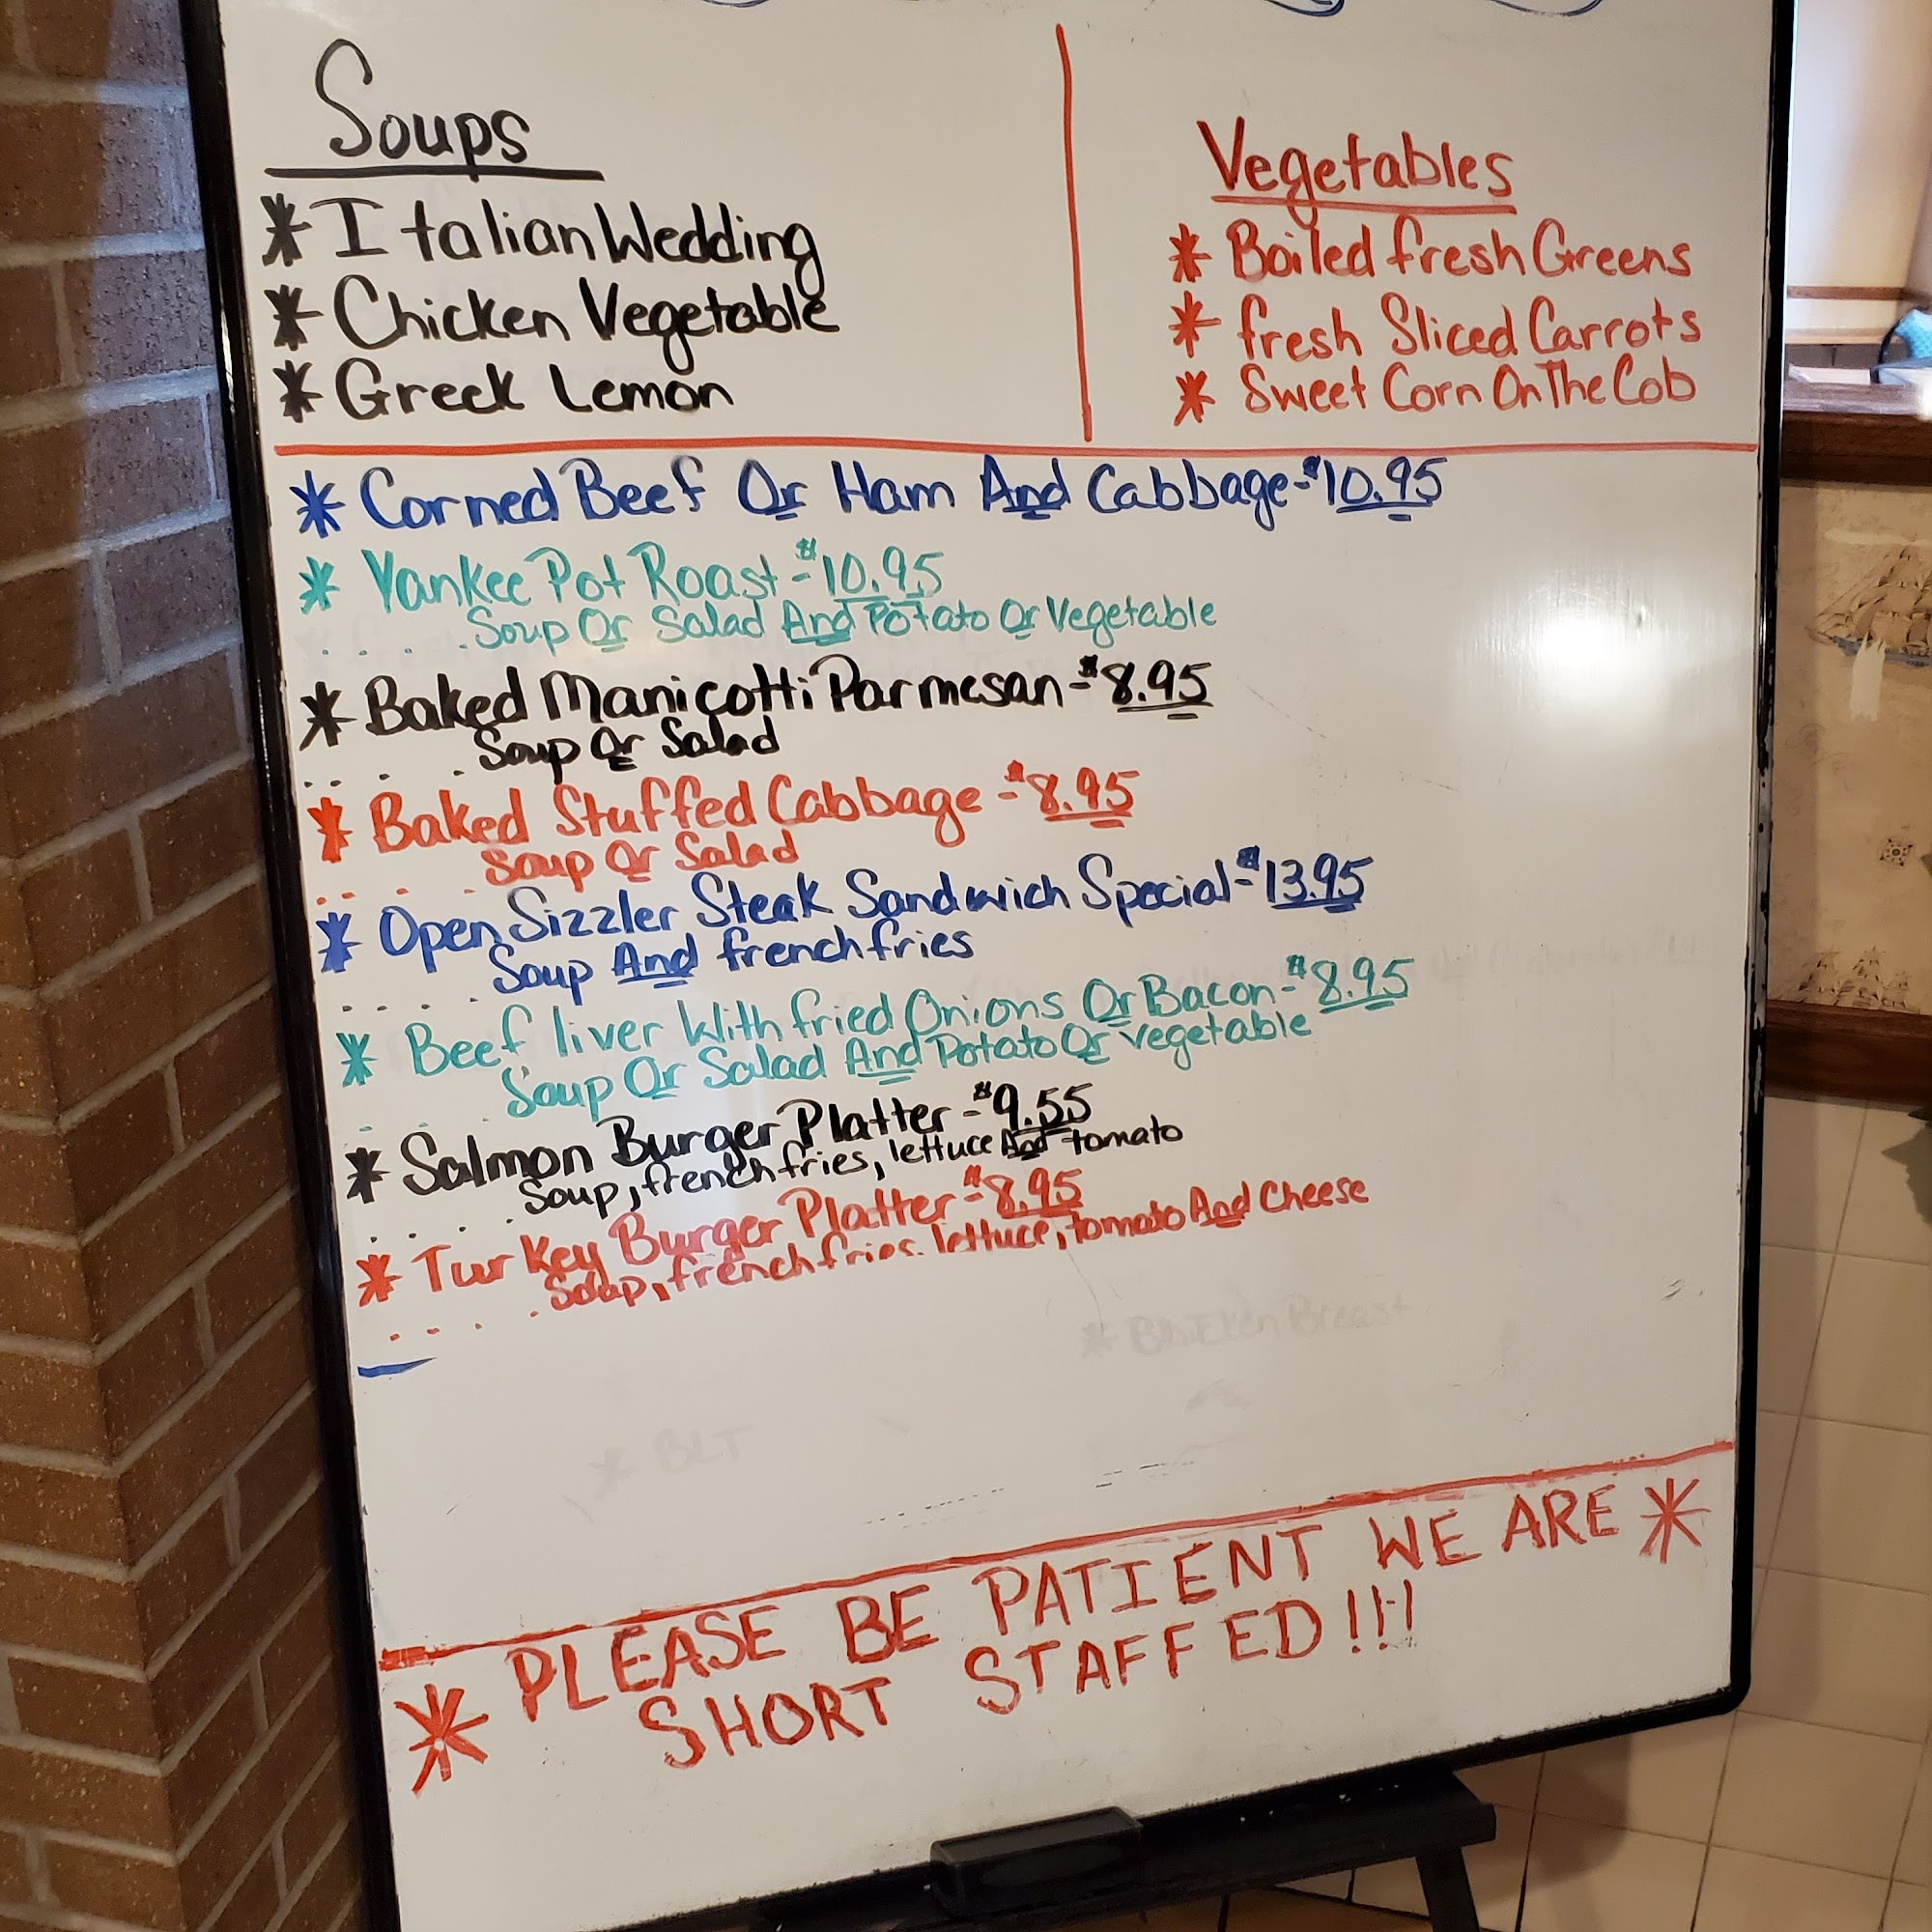 Soups
* Italian Wedding
* Chicken Vegetable
* Greek Lemon
Vegetables
* Boiled fresh Greens
* fresh Sliced Carrots
* Sweet Corn On The Cob
* Corned Beef Or Ham And Cabbage - $10.95
* Yankee Pot Roast - $10.95
. . . . . Soup Or Salad And Potato Or Vegetable
* Baked Manicotti Parmesan - $8.95
. . . . . Soup Or Salad
* Baked Stuffed Cabbage - $8.95
. . . . . Soup Or Salad
* Open Sizzler Steak Sandwich Special - $13.95
. . . . . Soup And french fries
* Beef liver With fried Onions Or Bacon - $8.95
. . . . Soup Or Salad And Potato Or vegetable
* Salmon Burger Platter - $9.55
. . . . . Soup, french fries, lettuce And tomato
* Turkey Burger Platter - $8.95
. . . . . Soup, french fries, lettuce, tomato And Cheese
* Chicken Breast
* BLT
* PLEASE BE PATIENT WE ARE *
SHORT STAFFED!!!!